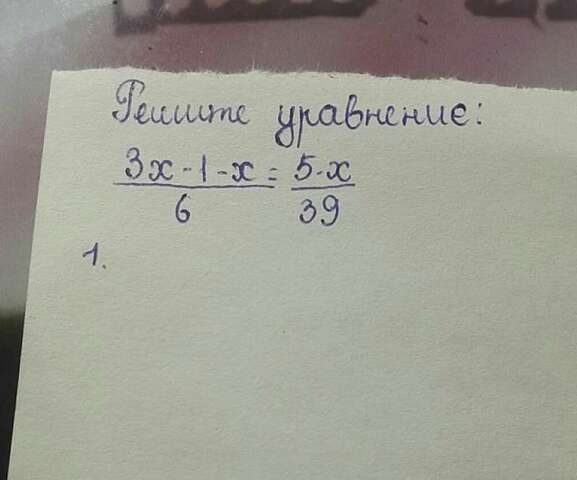 Решите уравнение:
3x-1-x = 5-x
6 39
1.